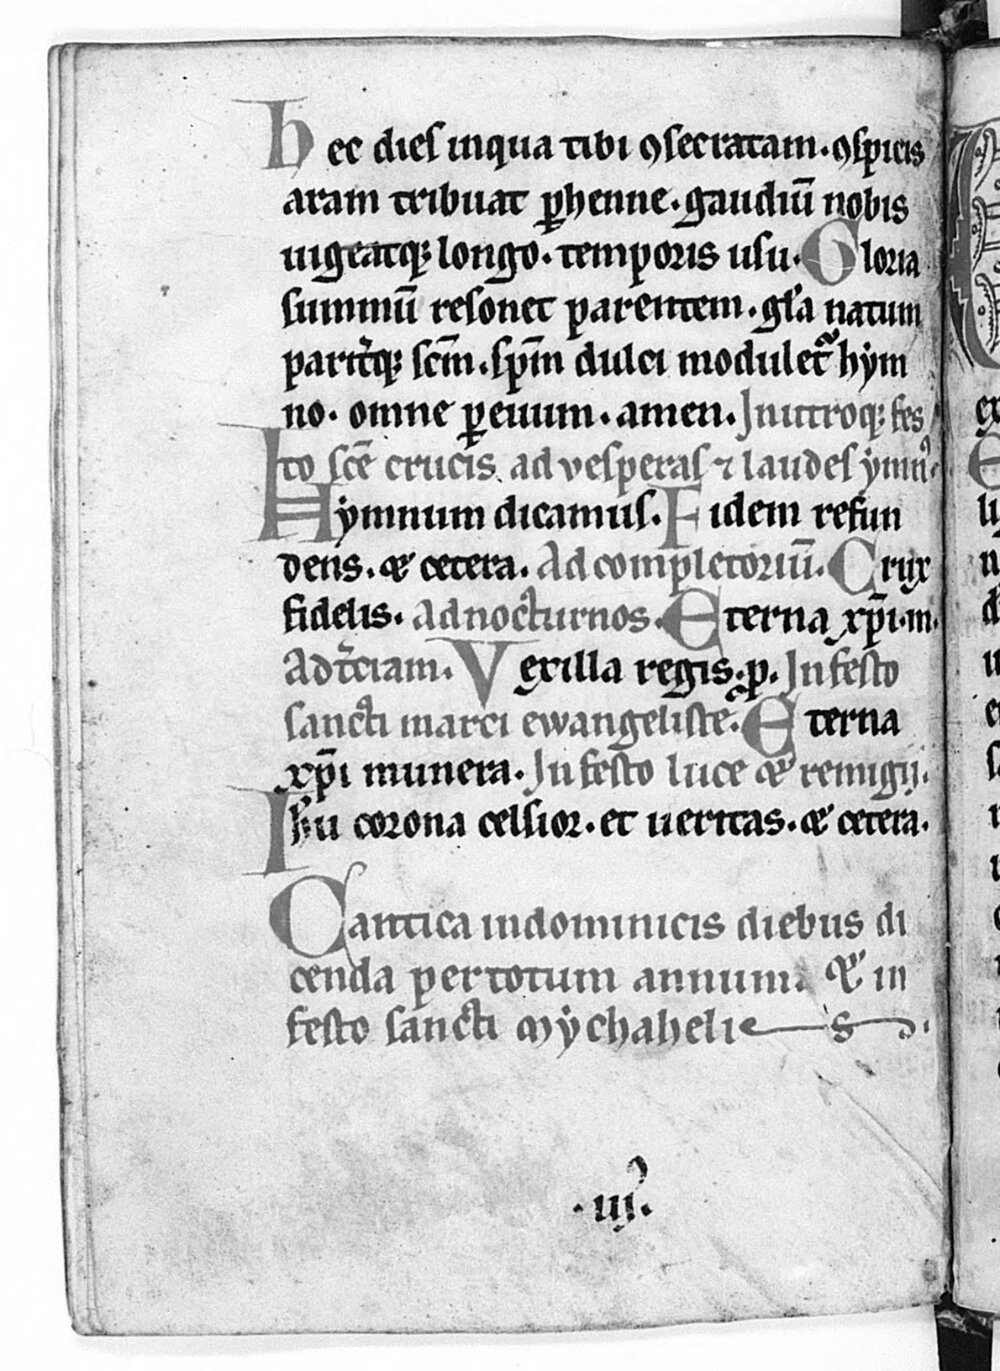 Hec dies inqua tibi ꝯsecratam. ꝯspicis
aram tribuat ꝑhenne. gaudiū nobis
uigeatqꝫ longo. temporis usu. Gloria
summū resonet parentem. gła natum
parit̉qꝫ scm̄. sp̄m dulci modulet᷑ hẏm
no. omne ꝑeuum. amen. Inutroqꝫ fes
to sc̄e crucis. ad vesperas ⁊ laudes ẏmn᷒.
Hẏmnum dicamus. Fidem refun
dens. & cetera. Ad completoriū. Crux
fidelis. ad nocturnos. Eterna xp̄i. m.
Ad t̉ciam. Vexilla regis. p. In festo
sancti marci ewangeliste. Eterna
xp̄i munera. In festo luce & remigij.
Ihu corona celsior. et ueritas. & cetera.
Cantica indominicis diebus di
cenda per totum annum. & in
festo sancti mẏchahelis.
.iij.